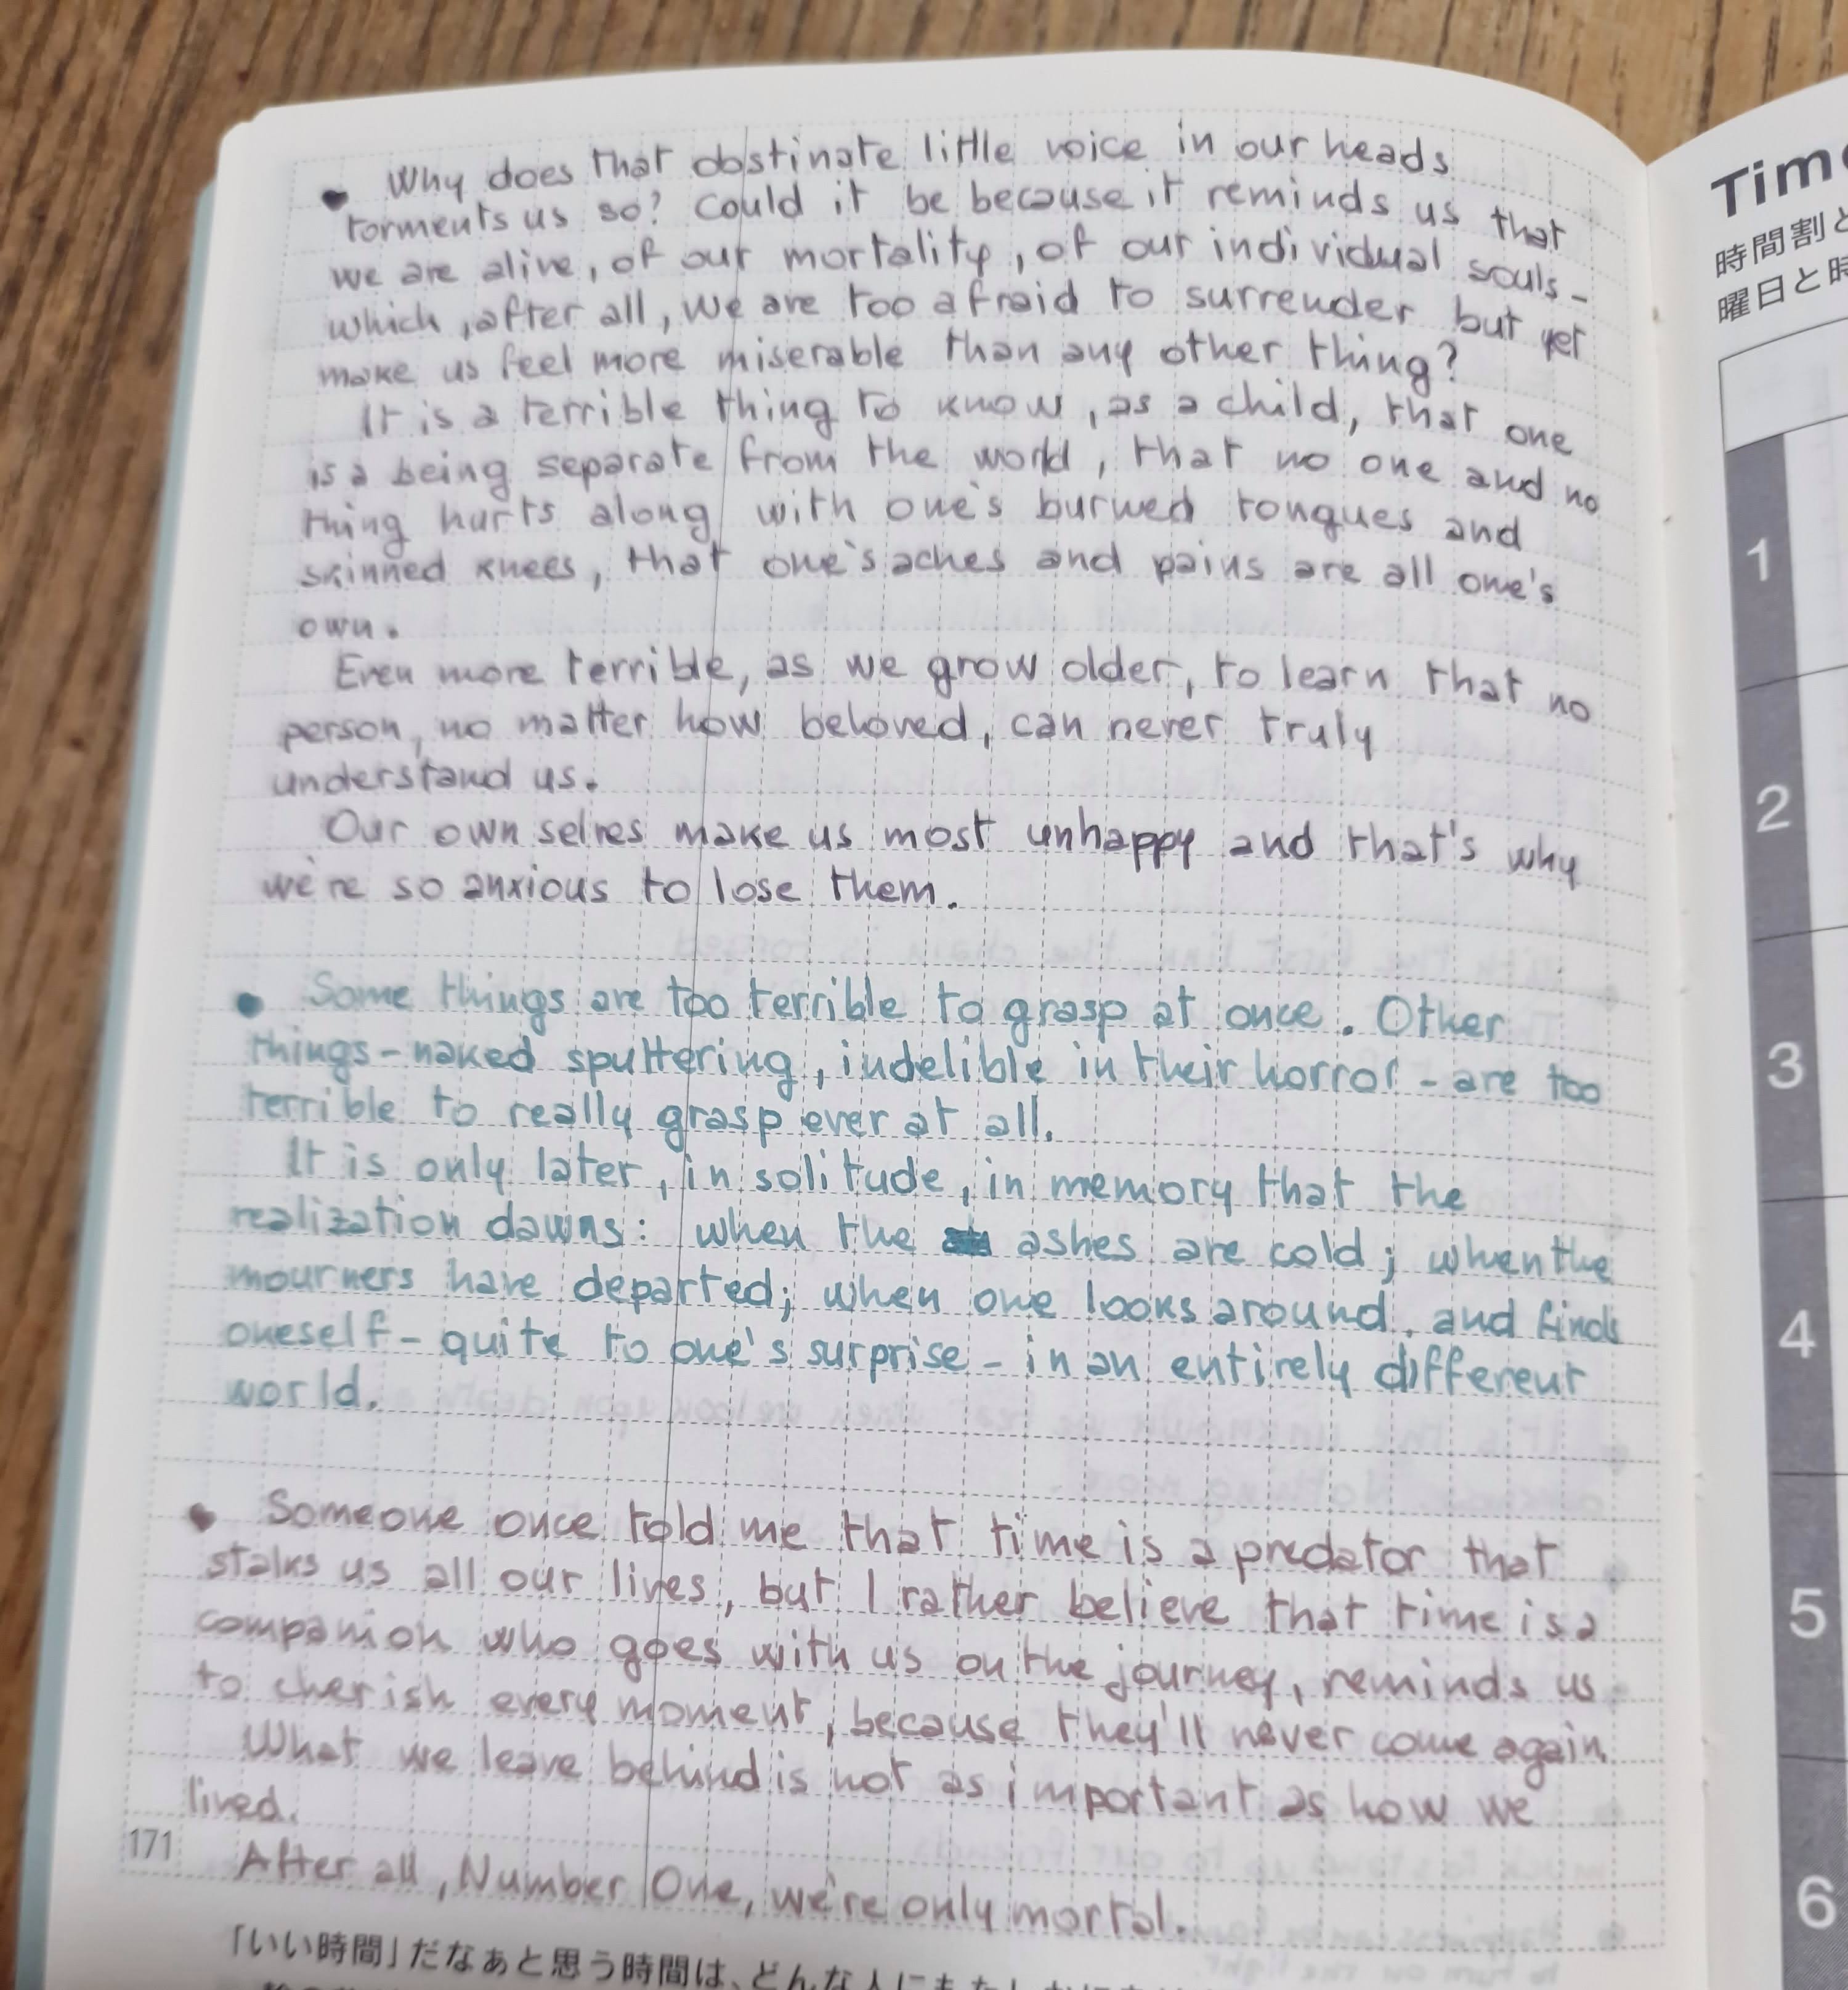 • Why does that obstinate little voice in our heads
torments us so? Could it be because it reminds us that
we are alive, of our mortality, of our individual souls -
which, after all, we are too afraid to surrender but yet
make us feel more miserable than any other thing?
It is a terrible thing to know, as a child, that one
is a being separate from the world, that no one and no
thing hurts along with one's burned tongues and
skinned knees, that one's aches and pains are all one's
own.
Even more terrible, as we grow older, to learn that no
person, no matter how beloved, can never truly
understand us.
Our own selves make us most unhappy and that's why
we're so anxious to lose them.
• Some things are too terrible to grasp at once. Other
things - naked sputtering, indelible in their horror - are too
terrible to really grasp ever at all.
It is only later, in solitude, in memory that the
realization dawns: when the ashes are cold; when the
mourners have departed; when one looks around, and finds
oneself - quite to one's surprise - in an entirely different
world.
• Someone once told me that time is a predator that
stalks us all our lives, but I rather believe that time is a
companion who goes with us on the journey, reminds us
to cherish every moment, because they'll never come again.
What we leave behind is not as important as how we
lived.
After all, Number One, we're only mortal.
171
「いい時間」だなぁと思う時間は、どんな人にも
Time
時間割と
曜日と時
1
2
3
4
5
6